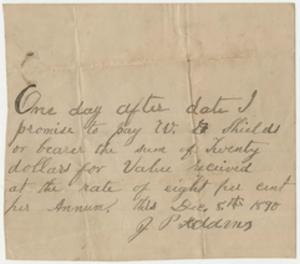 One day after date I
promise to pay W. E Shields
or bearer the sum of twenty
dollars for Value recieved
at the rate of eight per cent
per Annum. this Dec. 8th 1890
J P Addins